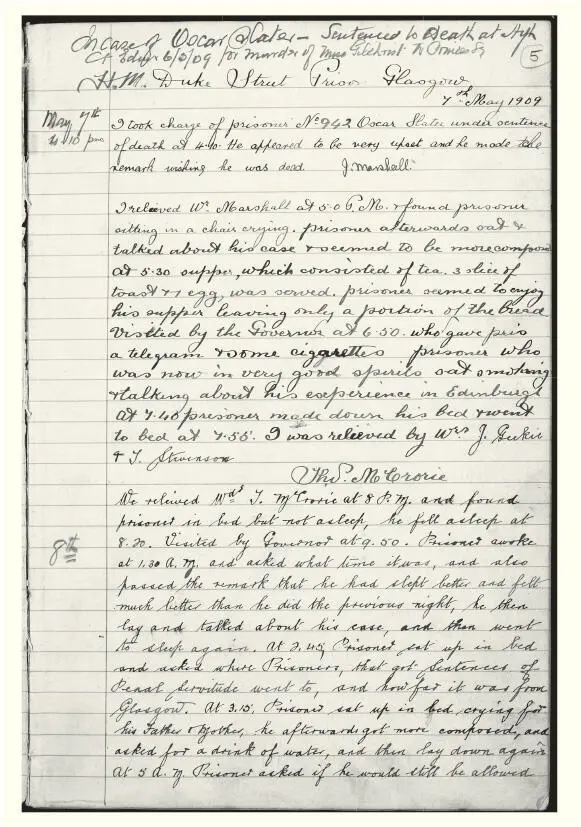 In case of Oscar Slater – Sentenced to Death at High
Ct Edinr 6/5/09 for murder of Miss Gilchrist
5
H.M. Duke Street Prison Glasgow
7th May 1909
May 7th
4.10 pm
I took charge of prisoner No 942 Oscar Slater under sentence
of death at 4.10. He appeared to be very upset and he made the
remark wishing he was dead. J. Marshall.
I relieved Wr. Marshall at 5.0 P.M. & found prisoner
sitting in a chair crying. prisoner afterwards sat &
talked about his case & seemed to be more compose
at 5.30 supper, which consisted of tea. 3 slice of
toast & 1 egg, was served. prisoner seemed to enjoy
his supper leaving only a portion of the bread
Visited by the Governor at 6.50. who gave pris
a telegram & some cigarettes prisoner who
was now in very good spirits sat smoking
& talking about his experience in Edinburgh
at 7.40 prisoner made down his bed & went
to bed at 7.55. I was relieved by Wrs J. Geikie
& T. Stevenson
Thos. McCrorie
We relieved Wdr T. McCrorie at 8 P.M. and found
prisoner in bed but not asleep, he fell asleep at
8.20. Visited by Governor at 9.50. Prisoner awoke
8th
at 1.30 A.M. and asked what time it was, and also
passed the remark that he had slept better and felt
much better than he did the previous night, he then
lay and talked about his case, and then went
to sleep again. At 2.45 Prisoner sat up in bed
and asked where Prisoners, that got Sentences of
Penal Servitude went to, and how far it was from
Glasgow. At 3.15, Prisoner sat up in bed, crying for
his Father & Mother, he afterwards got more composed, and
asked for a drink of water, and then lay down again
At 5 A.M. Prisoner asked if he would still be allowed